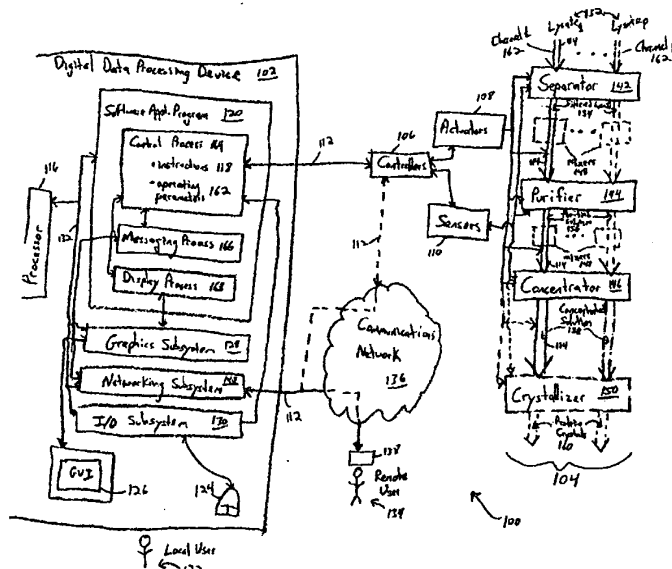 Digital Data Processing Device 102
Software Appl. Program 120
Control Process 114
• instructions 118
• operating parameters 162
Messaging Process 166
Display Process 168
Graphics Subsystem 128
Networking Subsystem
I/O Subsystem 130
GUI
126
124
116
Processor
132
Local User
112
106
Controllers
108
Actuators
Sensors
110
112
Communications Network
136
112
138
Remote User
134
100
Lysates
152
Channel
162
Channel
162
Separator 142
154
mixers
148
Purifier 144
mixers
148
Concentrator 146
Concentrated Solution
158
Crystallizer 150
Protein Crystals
160
104